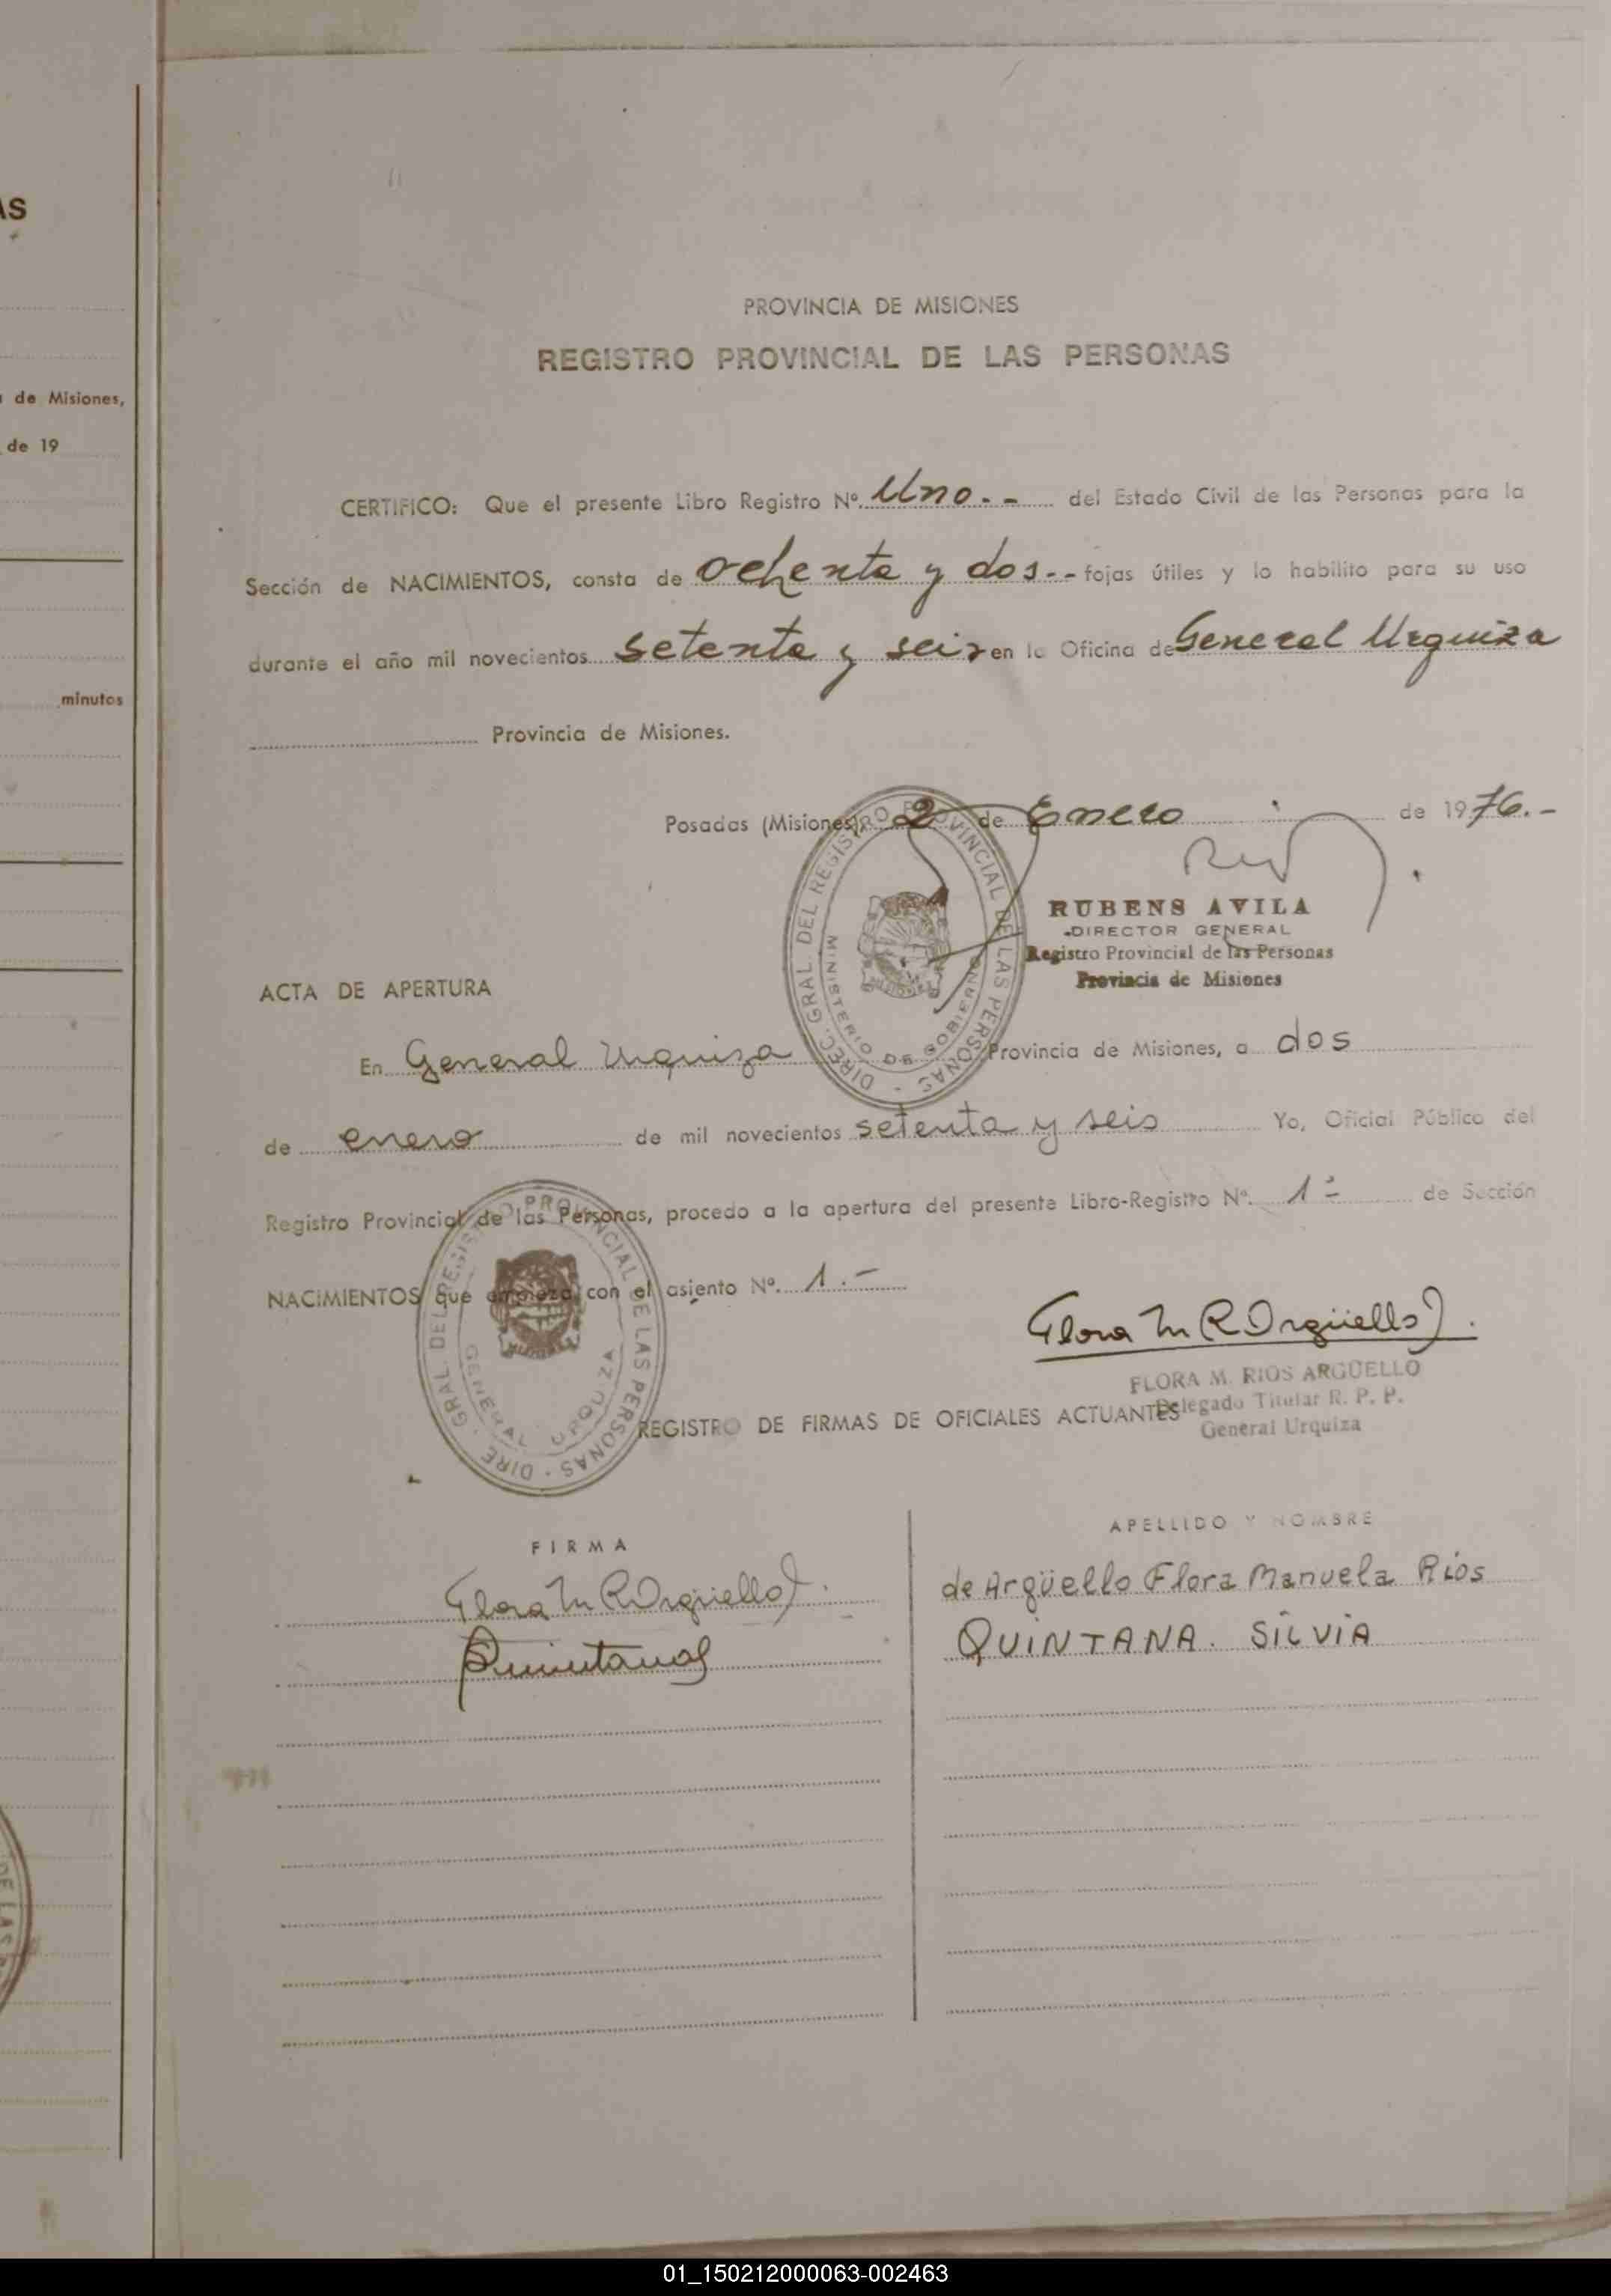 AS
de Misiones,
de 19
minutos
PROVINCIA DE MISIONES
REGISTRO PROVINCIAL DE LAS PERSONAS
CERTIFICO: Que el presente Libro Registro Nº. Uno.- del Estado Civil de las Personas para la
Sección de NACIMIENTOS, consta de ochenta y dos.- fojas útiles y lo habilito para su uso
durante el año mil novecientos setenta y seis en la Oficina de General Urquiza
Provincia de Misiones.
Posadas (Misiones), 2 de Enero de 1976.-
RUBENS AVILA
DIRECTOR GENERAL
Registro Provincial de las Personas
Provincia de Misiones
DIREC. GRAL. DEL REGISTRO PROVINCIAL DE LAS PERSONAS -
MINISTERIO DE GOBIERNO
MISIONES
ACTA DE APERTURA
En General Urquiza Provincia de Misiones, a dos
de enero de mil novecientos setenta y seis Yo, Oficial Público del
Registro Provincial de las Personas, procedo a la apertura del presente Libro-Registro Nº. 1- de Sección
NACIMIENTOS que empieza con el asiento Nº. 1.-
DIRE. GRAL. DEL REGISTRO PROVINCIAL DE LAS PERSONAS -
GENERAL URQUIZA
MISIONES
Flora M R Argüello
FLORA M. RIOS ARGÜELLO
Delegado Titular R. P. P.
General Urquiza
REGISTRO DE FIRMAS DE OFICIALES ACTUANTES
FIRMA
APELLIDO Y NOMBRE
Flora M R Argüello
de Argüello Flora Manuela Rios
Quintana S
QUINTANA. SILVIA
DE LAS
01_150212000063-002463